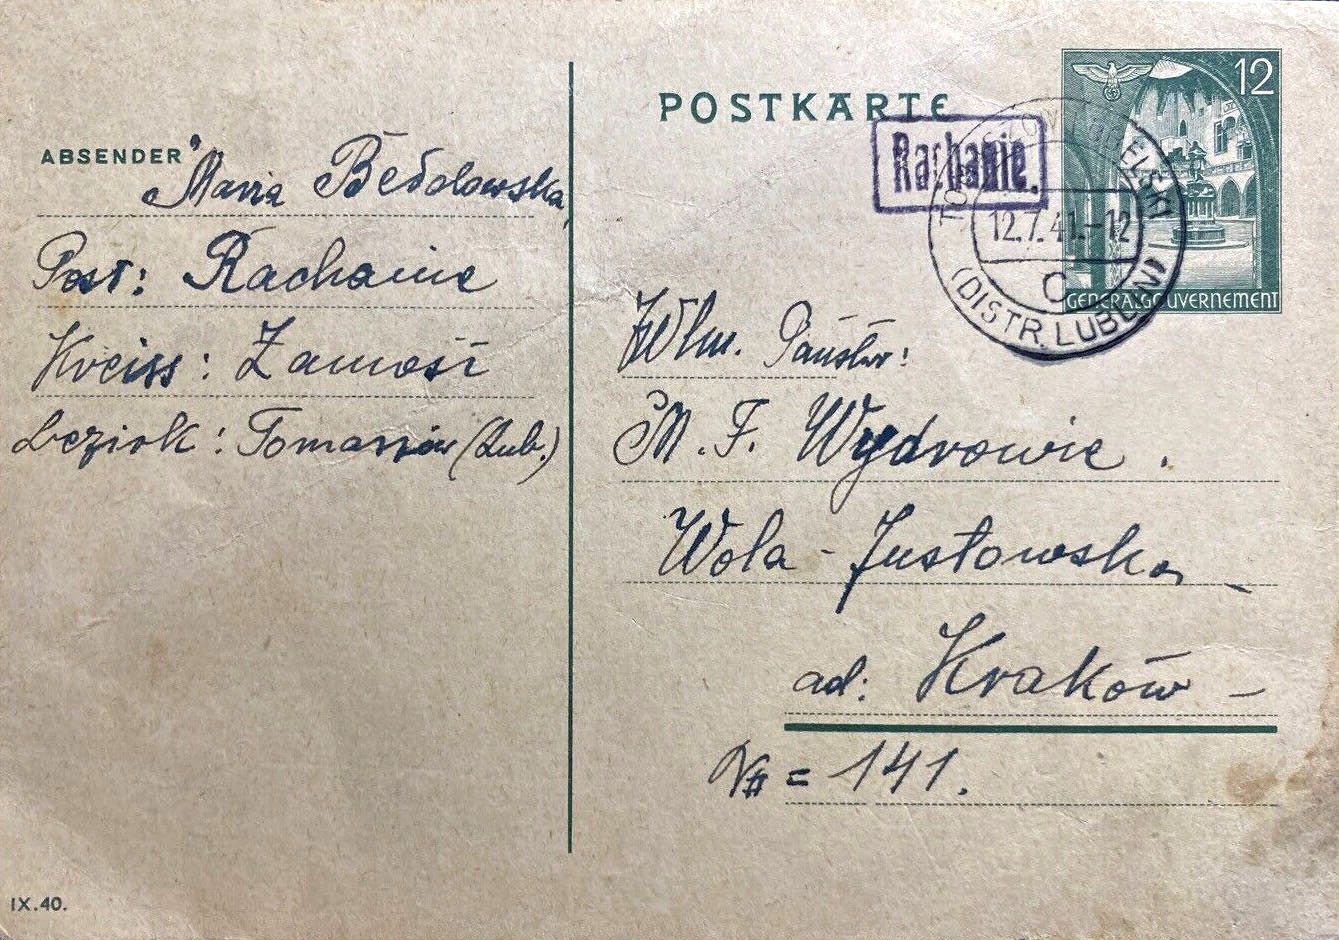 POSTKARTE
12
GENERALGOUVERNEMENT
Rachanie.
TOMASZOW LUBELSKI
12.7.41.-12
C
(DISTR. LUBLIN)
ABSENDER
Maria
Post: Rachanie
Kreiss: Zamość
Bezirk: Tomaszów (Lub.)
WPlm. Państwo:
M. F. Wydrowie.
Wola - Justowska -
ad: Kraków -
№ = 141.
IX.40.